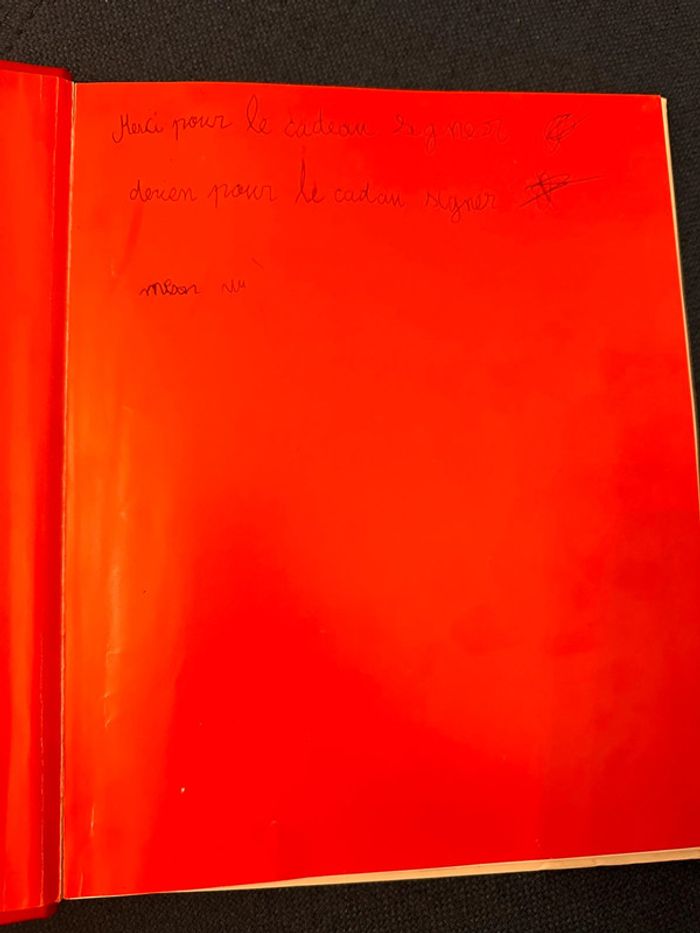 Merci pour le cadeau signer
derien pour le cadau signer